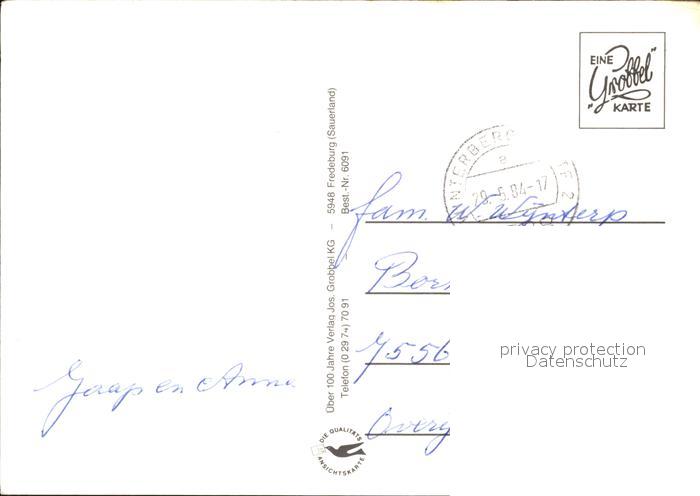 EINE
"Grobbel"
KARTE
NTERBERG
a
29.5.84-17
Fam. W. Wijnterp
Bor
7556
Overij
privacy protection
Datenschutz
Jaap en Anna
Über 100 Jahre Verlag Jos. Grobbel KG – 5948 Fredeburg (Sauerland)
Telefon (0 29 74) 70 91 Best.-Nr. 6091
DIE QUALITÄTS
ANSICHTSKARTE